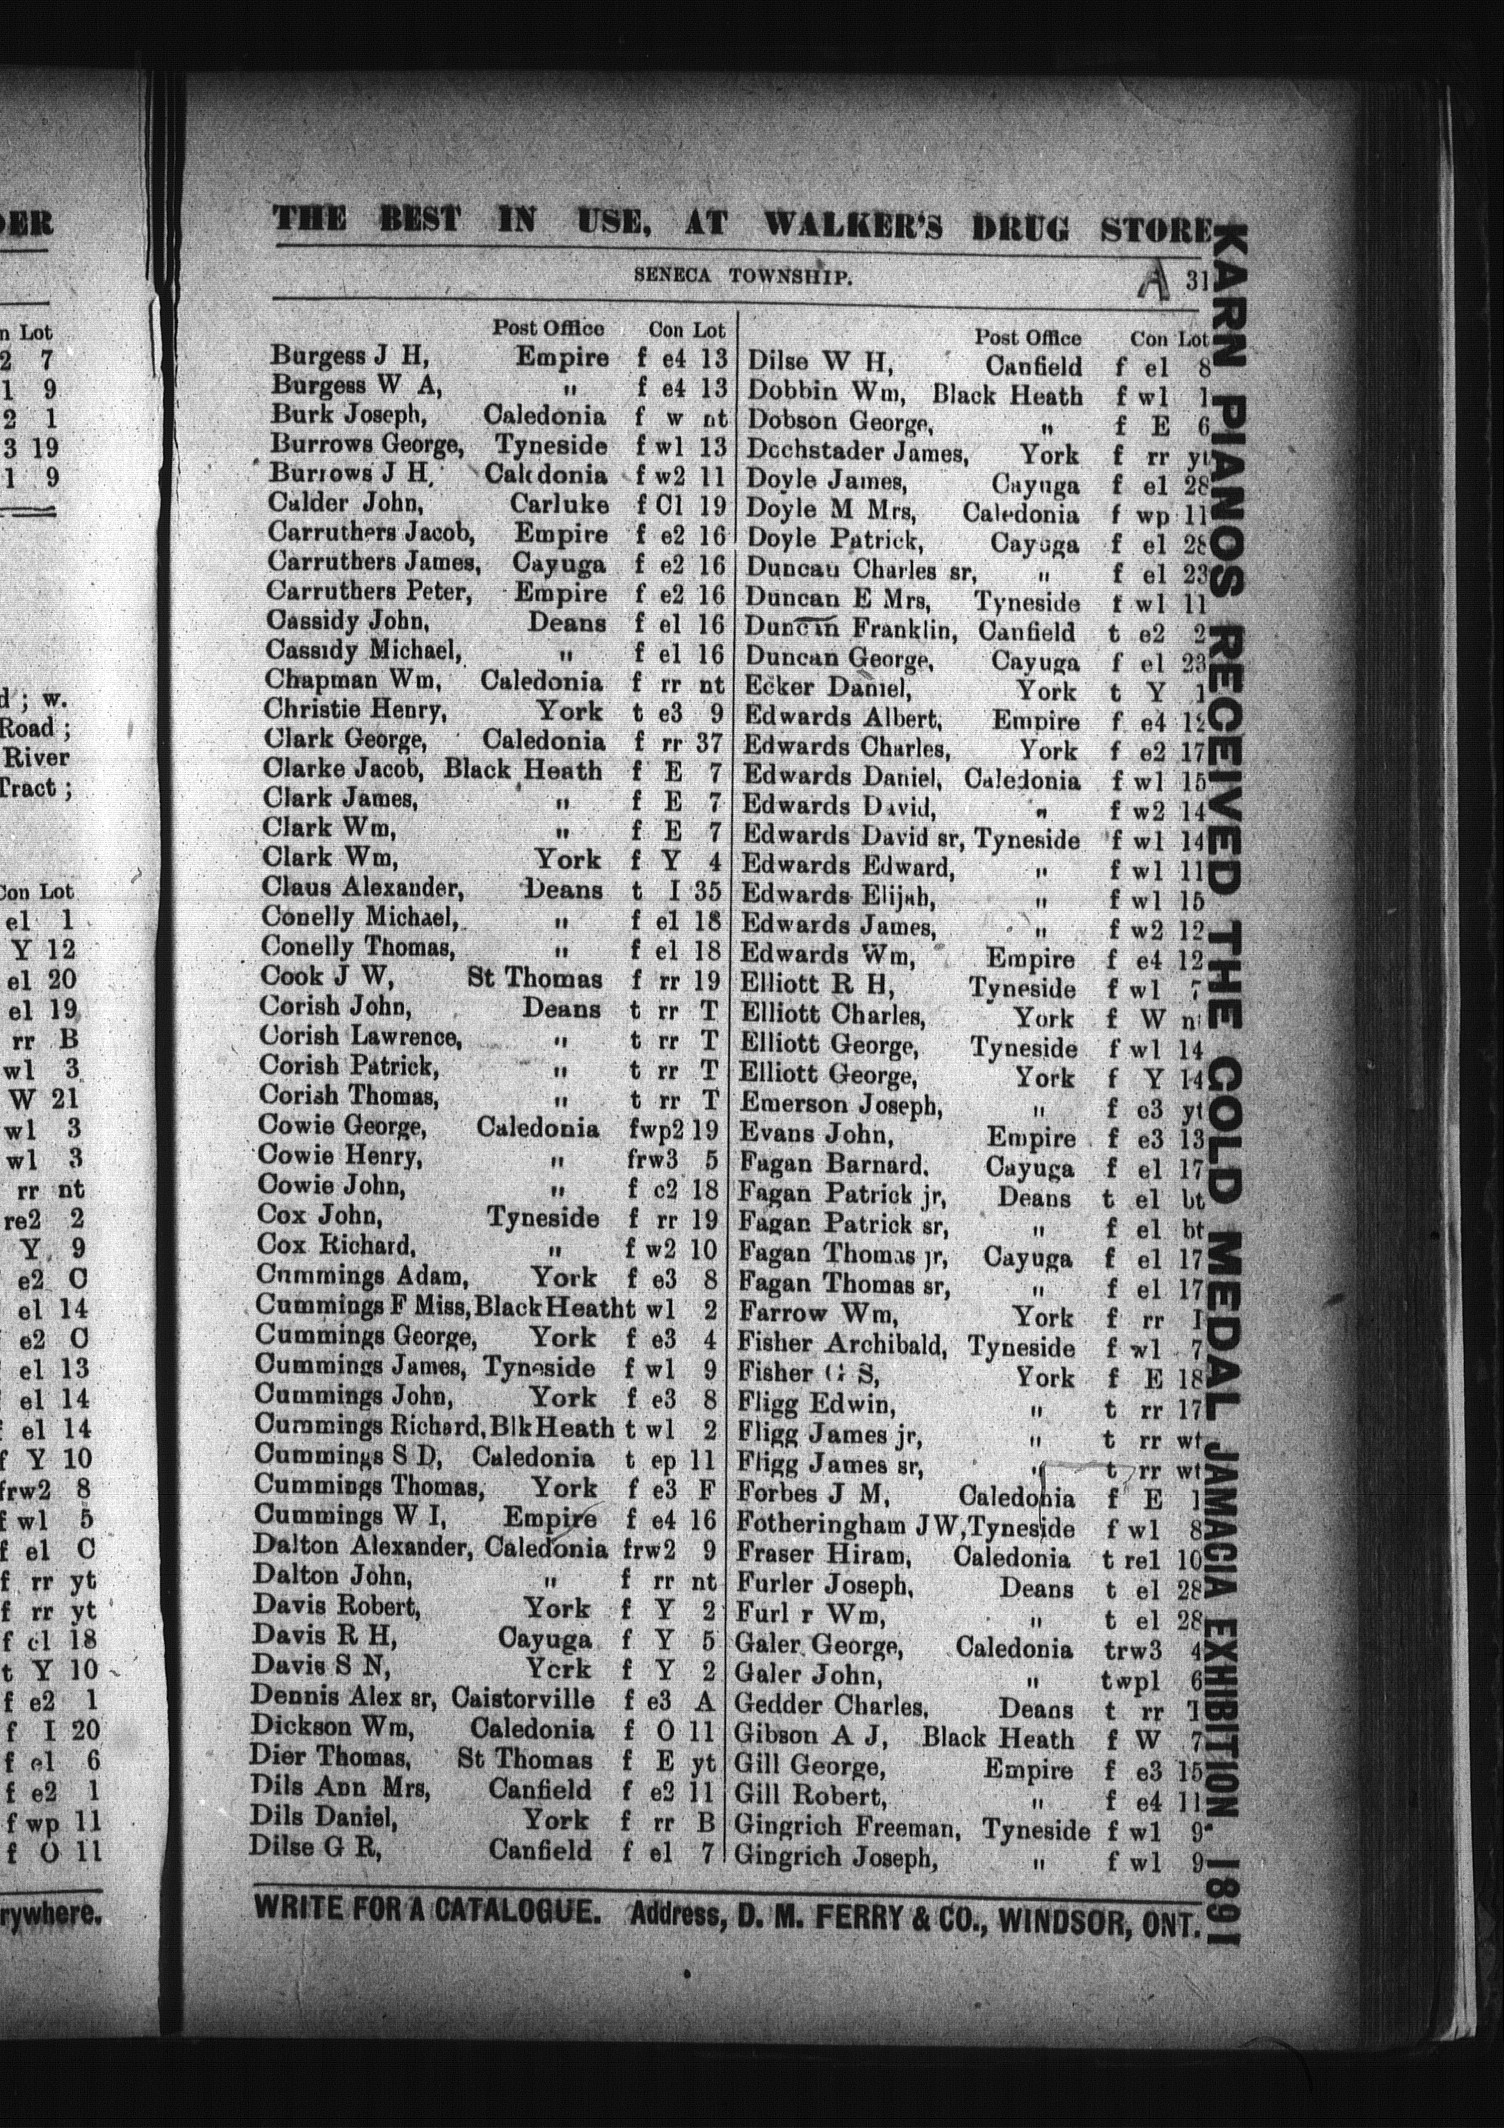 DER
n Lot
2 7
1 9
2 1
3 19
1 9
d ; w.
Road ;
River
Tract ;
Con Lot
el 1
Y 12
el 20
el 19
rr B
wl 3
W 21
wl 3
wl 3
rr nt
re2 2
Y 9
e2 C
el 14
e2 C
el 13
el 14
f el 14
f Y 10
frw2 8
f wl 5
f el C
f rr yt
f rr yt
f cl 18
t Y 10
f e2 1
f I 20
f el 6
f e2 1
f wp 11
f O 11
rywhere.
THE BEST IN USE, AT WALKER'S DRUG STORE
SENECA TOWNSHIP. A 31
Post Office Con Lot
Burgess J H, Empire f e4 13
Burgess W A, " f e4 13
Burk Joseph, Caledonia f w nt
Burrows George, Tyneside f wl 13
Burrows J H, Caledonia f w2 11
Calder John, Carluke f Cl 19
Carruthers Jacob, Empire f e2 16
Carruthers James, Cayuga f e2 16
Carruthers Peter, Empire f e2 16
Cassidy John, Deans f el 16
Cassidy Michael, " f el 16
Chapman Wm, Caledonia f rr nt
Christie Henry, York t e3 9
Clark George, Caledonia f rr 37
Clarke Jacob, Black Heath f E 7
Clark James, " f E 7
Clark Wm, " f E 7
Clark Wm, York f Y 4
Claus Alexander, Deans t I 35
Conelly Michael, " f el 18
Conelly Thomas, " f el 18
Cook J W, St Thomas f rr 19
Corish John, Deans t rr T
Corish Lawrence, " t rr T
Corish Patrick, " t rr T
Corish Thomas, " t rr T
Cowie George, Caledonia fwp2 19
Cowie Henry, " frw3 5
Cowie John, " f c2 18
Cox John, Tyneside f rr 19
Cox Richard, " f w2 10
Cummings Adam, York f e3 8
Cummings F Miss, Black Heath t wl 2
Cummings George, York f e3 4
Cummings James, Tyneside f wl 9
Cummings John, York f e3 8
Cummings Richard, Blk Heath t wl 2
Cummings S D, Caledonia t ep 11
Cummings Thomas, York f e3 F
Cummings W I, Empire f e4 16
Dalton Alexander, Caledonia frw2 9
Dalton John, " f rr nt
Davis Robert, York f Y 2
Davis R H, Cayuga f Y 5
Davis S N, York f Y 2
Dennis Alex sr, Caistorville f e3 A
Dickson Wm, Caledonia f O 11
Dier Thomas, St Thomas f E yt
Dils Ann Mrs, Canfield f e2 11
Dils Daniel, York f rr B
Dilse G R, Canfield f el 7
Post Office Con Lot
Dilse W H, Canfield f el 8
Dobbin Wm, Black Heath f wl 1
Dobson George, " f E 6
Dochstader James, York f rr yt
Doyle James, Cayuga f el 28
Doyle M Mrs, Caledonia f wp 11
Doyle Patrick, Cayuga f el 28
Duncan Charles sr, " f el 23
Duncan E Mrs, Tyneside f wl 11
Duncan Franklin, Canfield t e2 2
Duncan George, Cayuga f el 23
Ecker Daniel, York t Y 1
Edwards Albert, Empire f e4 12
Edwards Charles, York f e2 17
Edwards Daniel, Caledonia f wl 15
Edwards David, " f w2 14
Edwards David sr, Tyneside f wl 14
Edwards Edward, " f wl 11
Edwards Elijah, " f wl 15
Edwards James, " f w2 12
Edwards Wm, Empire f e4 12
Elliott R H, Tyneside f wl 7
Elliott Charles, York f W nt
Elliott George, Tyneside f wl 14
Elliott George, York f Y 14
Emerson Joseph, " f e3 yt
Evans John, Empire f e3 13
Fagan Barnard, Cayuga f el 17
Fagan Patrick jr, Deans t el bt
Fagan Patrick sr, " f el bt
Fagan Thomas jr, Cayuga f el 17
Fagan Thomas sr, " f el 17
Farrow Wm, York f rr I
Fisher Archibald, Tyneside f wl 7
Fisher G S, York f E 18
Fligg Edwin, " t rr 17
Fligg James jr, " t rr wt
Fligg James sr, " t rr wt
Forbes J M, Caledonia f E 1
Fotheringham J W, Tyneside f wl 8
Fraser Hiram, Caledonia t rel 10
Furler Joseph, Deans t el 28
Furl r Wm, " t el 28
Galer George, Caledonia trw3 4
Galer John, " twpl 6
Gedder Charles, Deans t rr T
Gibson A J, Black Heath f W 7
Gill George, Empire f e3 15
Gill Robert, " f e4 11
Gingrich Freeman, Tyneside f wl 9
Gingrich Joseph, " f wl 9
WRITE FOR A CATALOGUE. Address, D. M. FERRY & CO., WINDSOR, ONT.
KARN PIANOS RECEIVED THE GOLD MEDAL JAMACIA EXHIBITION 1891